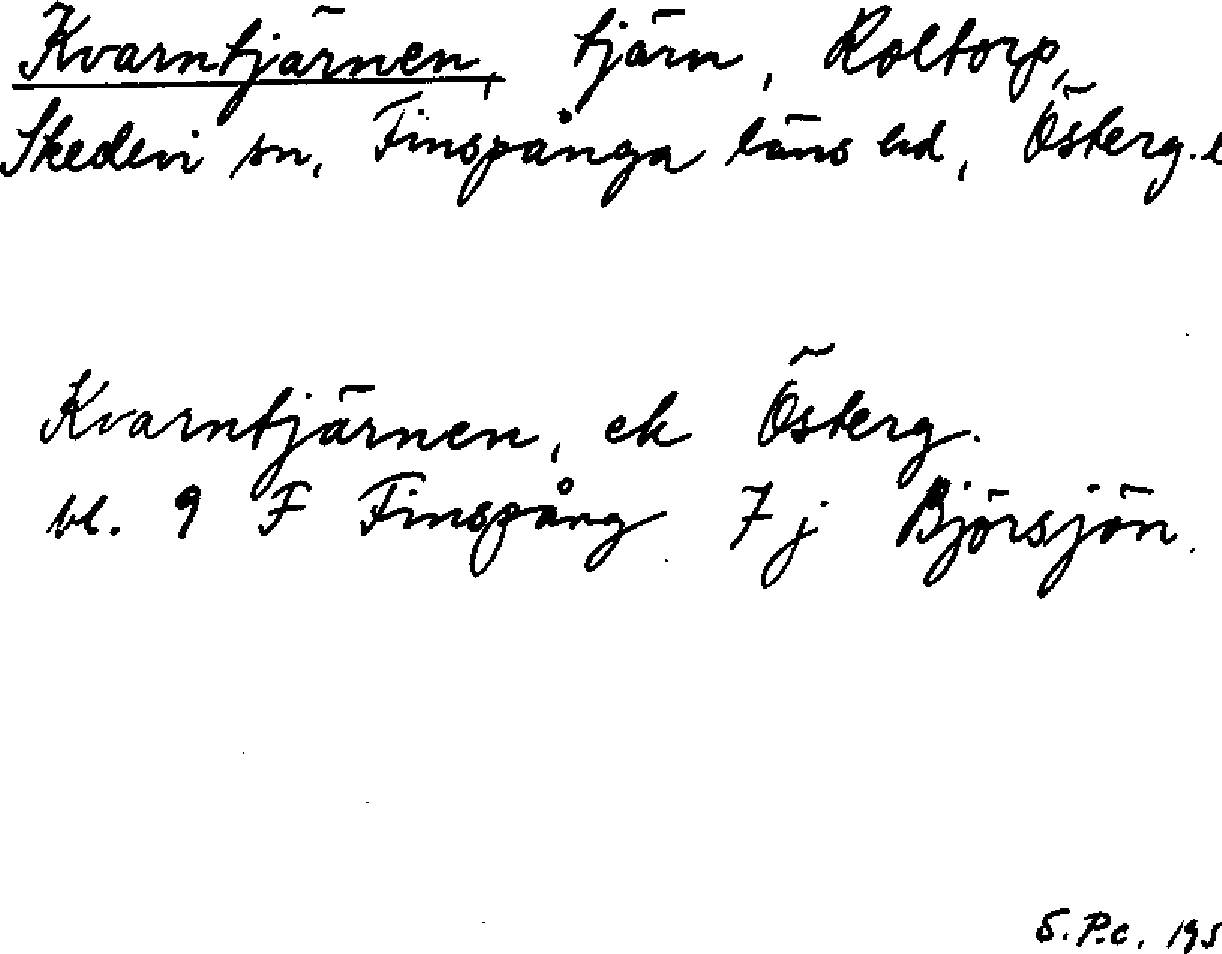 Kvarntjärnen, tjärn, Roltorp,
Skedevi sn, Finspånga läns hd, Österg. l
Kvarntjärnen, ek Österg.
bl. 9 F Finspång 7 j Björsjön.
S.P.c. 195